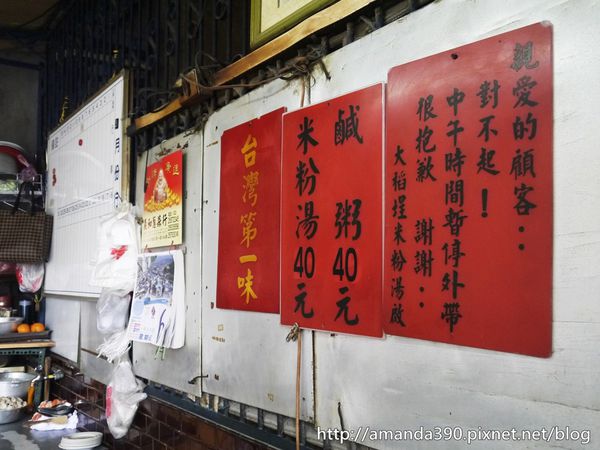 親愛的顧客：
對不起！
中午時間暫停外帶
很抱歉　謝謝：
大稻埕米粉湯啟
鹹粥40元
米粉湯40元
台灣第一味
月份
http://amanda390.pixnet.net/blog